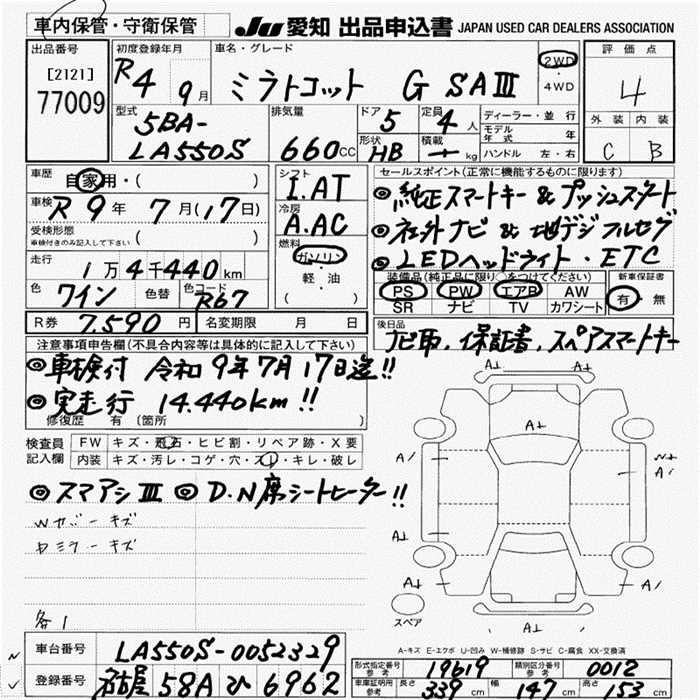 車内保管・守衛保管
JU 愛知 出品申込書 JAPAN USED CAR DEALERS ASSOCIATION
出品番号 初度登録年月 車名・グレード 2WD 評価点
[2121] R4 9月 ミラトコット G SAⅢ ・ 4
77009 4WD
型式 排気量 ドア 5 定員 4人 ディーラー・並行 外装 内装
5BA- モデル年式 年
LA550S 660cc 形状 HB 積載 ー kg ハンドル 左・右 C B
車歴 自家用・( ) シフト I.AT セールスポイント(正常に機能するものに限ります)
車検 R9年 7月(17日) 冷房 A.AC ◎純正スマートキー&プッシュスタート
受検形態 ( ) ◎社外ナビ&地デジフルセグ
車検付きのみ記入して下さい 燃料 ガソリン ◎LEDヘッドライト・ETC
走行 1万4千440km 軽・油 装備品(純正品に限り○をつけてください) 新車保証書
色 ワイン 色替 色コード R67 ( ) PS PW エアB AW 有・無
SR ナビ TV カワシート
R券 7,590円 名変期限 月 日 後日品
注意事項申告欄(不具合内容等は具体的に記入して下さい) ナビ取、保証書、スペアスマートキー
◎車検付 令和9年7月17日迄!!
◎実走行 14.440km!!
修復歴 有 (箇所 )
検査員 FW キズ・飛石・ヒビ割・リペア跡・X要
記入欄 内装 キズ・汚レ・コゲ・穴・スレ・キレ・破レ
◎スマアシⅢ ◎D.N席シートヒーター!!
キズ
ミラーキズ
各1
A1 A1
A1
A1 A1
A1 A1
A1 A1
A1 A1
スペア
A-キズ E-エクボ U-凹み W-補修跡 S-サビ C-腐食 XX-交換済
車台番号 LA550S-0052329
登録番号 名古屋 58A ひ 6962
型式指定番号 参考 19619 類別区分番号 参考 0012
車庫証明用 参考 長さ 339cm 幅 147cm 高さ 153cm